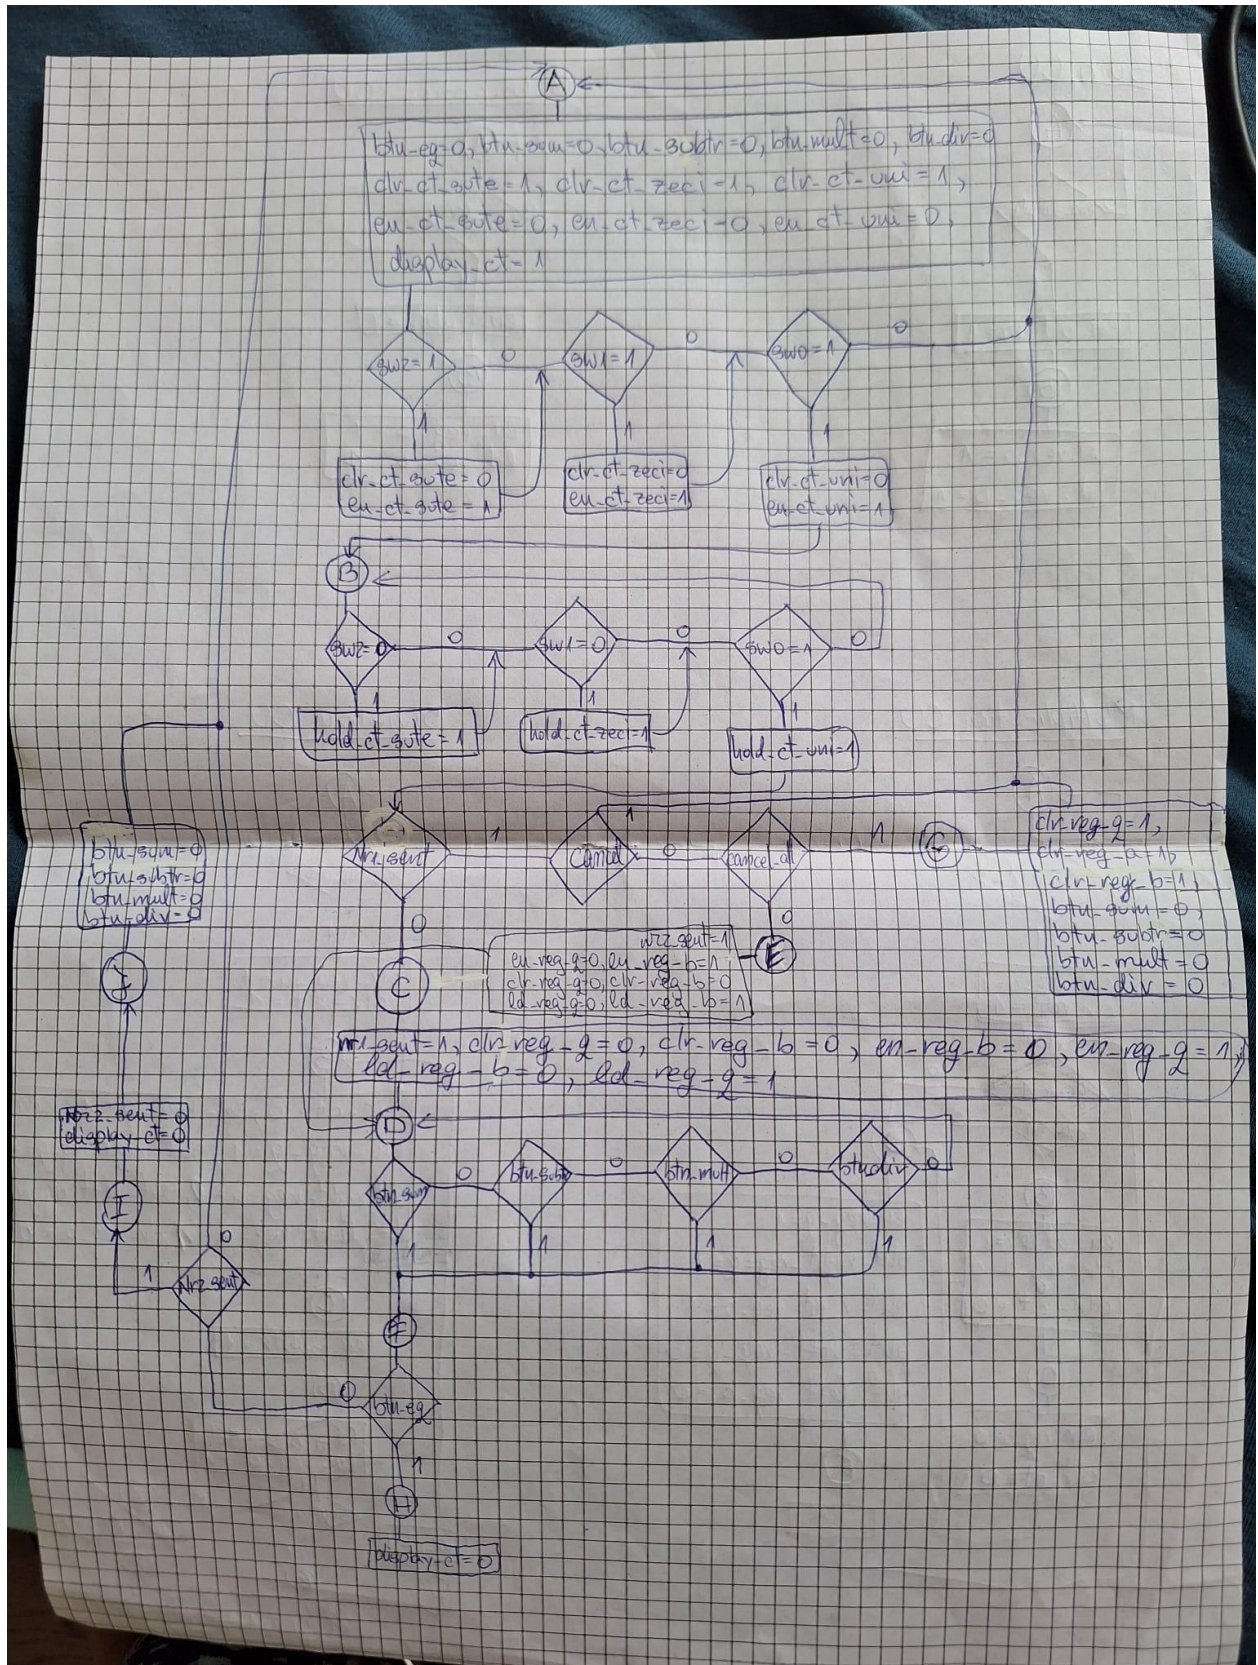 A
btn-eq=0, btn-sum=0, btn-subtr=0, btn-mult=0, btn-div=0
clr-ct-sute=1, clr-ct-zeci=1, clr-ct-uni=1,
en-ct-sute=0, en-ct-zeci=0, en-ct-uni=0,
display-ct=1
sw2=1 0 sw1=1 0 sw0=1 0
1 1 1
clr-ct-sute=0 clr-ct-zeci=0 clr-ct-uni=0
en-ct-sute=1 en-ct-zeci=1 en-ct-uni=1
B
sw2=0 0 sw1=0 0 sw0=1 0
1 1 1
hold-ct-sute=1 hold-ct-zeci=1 hold-ct-uni=1
1
nr1-sent 1 cancel 0 cancel-all 1 G
0 0
clr-reg-q=1,
clr-reg-a=1,
clr-reg-b=1,
btn-sum=0,
btn-subtr=0
btn-mult=0
btn-div=0
btn-sum=0
btn-subtr=0
btn-mult=0
btn-div=0
J
C
nr2-sent=1
en-reg-q=0, en-reg-b=1
clr-reg-q=0, clr-reg-b=0
ld-reg-q=0, ld-reg-b=1
E
nr1-sent=1, clr-reg-q=0, clr-reg-b=0, en-reg-b=0, en-reg-q=1,
ld-reg-b=0, ld-reg-q=1
nr2-sent=0
display-ct=0
D
btn-sum 0 btn-subtr 0 btn-mult 0 btn-div 0
1 1 1 1
I
0
1 Nr2-sent
0 btn-eq
1
H
display-ct=0